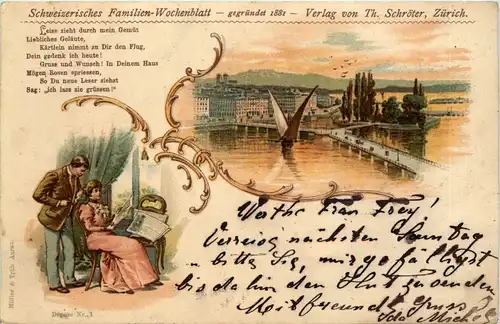 Schweizerisches Familien-Wochenblatt — gegründet 1881 — Verlag von Th. Schröter, Zürich.
Leise zieht durch mein Gemüt
Liebliches Geläute,
Kärtlein nimmt zu Dir den Flug,
Dein gedenk ich heute!
Gruss und Wunsch! In Deinem Haus
Mögen Rosen spriessen,
So Du neue Leser siehst
Sag: „ich lass sie grüssen!“
Werthe Frau Frey!
nächsten Sonntag
bitte Sie, mir gefälligst
bis da hin den Hut zu senden
Mit freundl. Gruss!
Ida
Müller & Trüb, Aarau.
Dessin Nr. 3